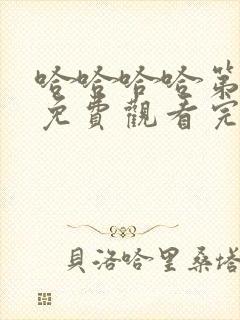 哈哈哈哈第
免費觀看完
貝洛哈里桑塔